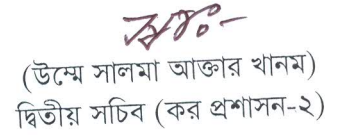 (উম্মে সালমা আক্তার খানম)
দ্বিতীয় সচিব (কর প্রশাসন-২)